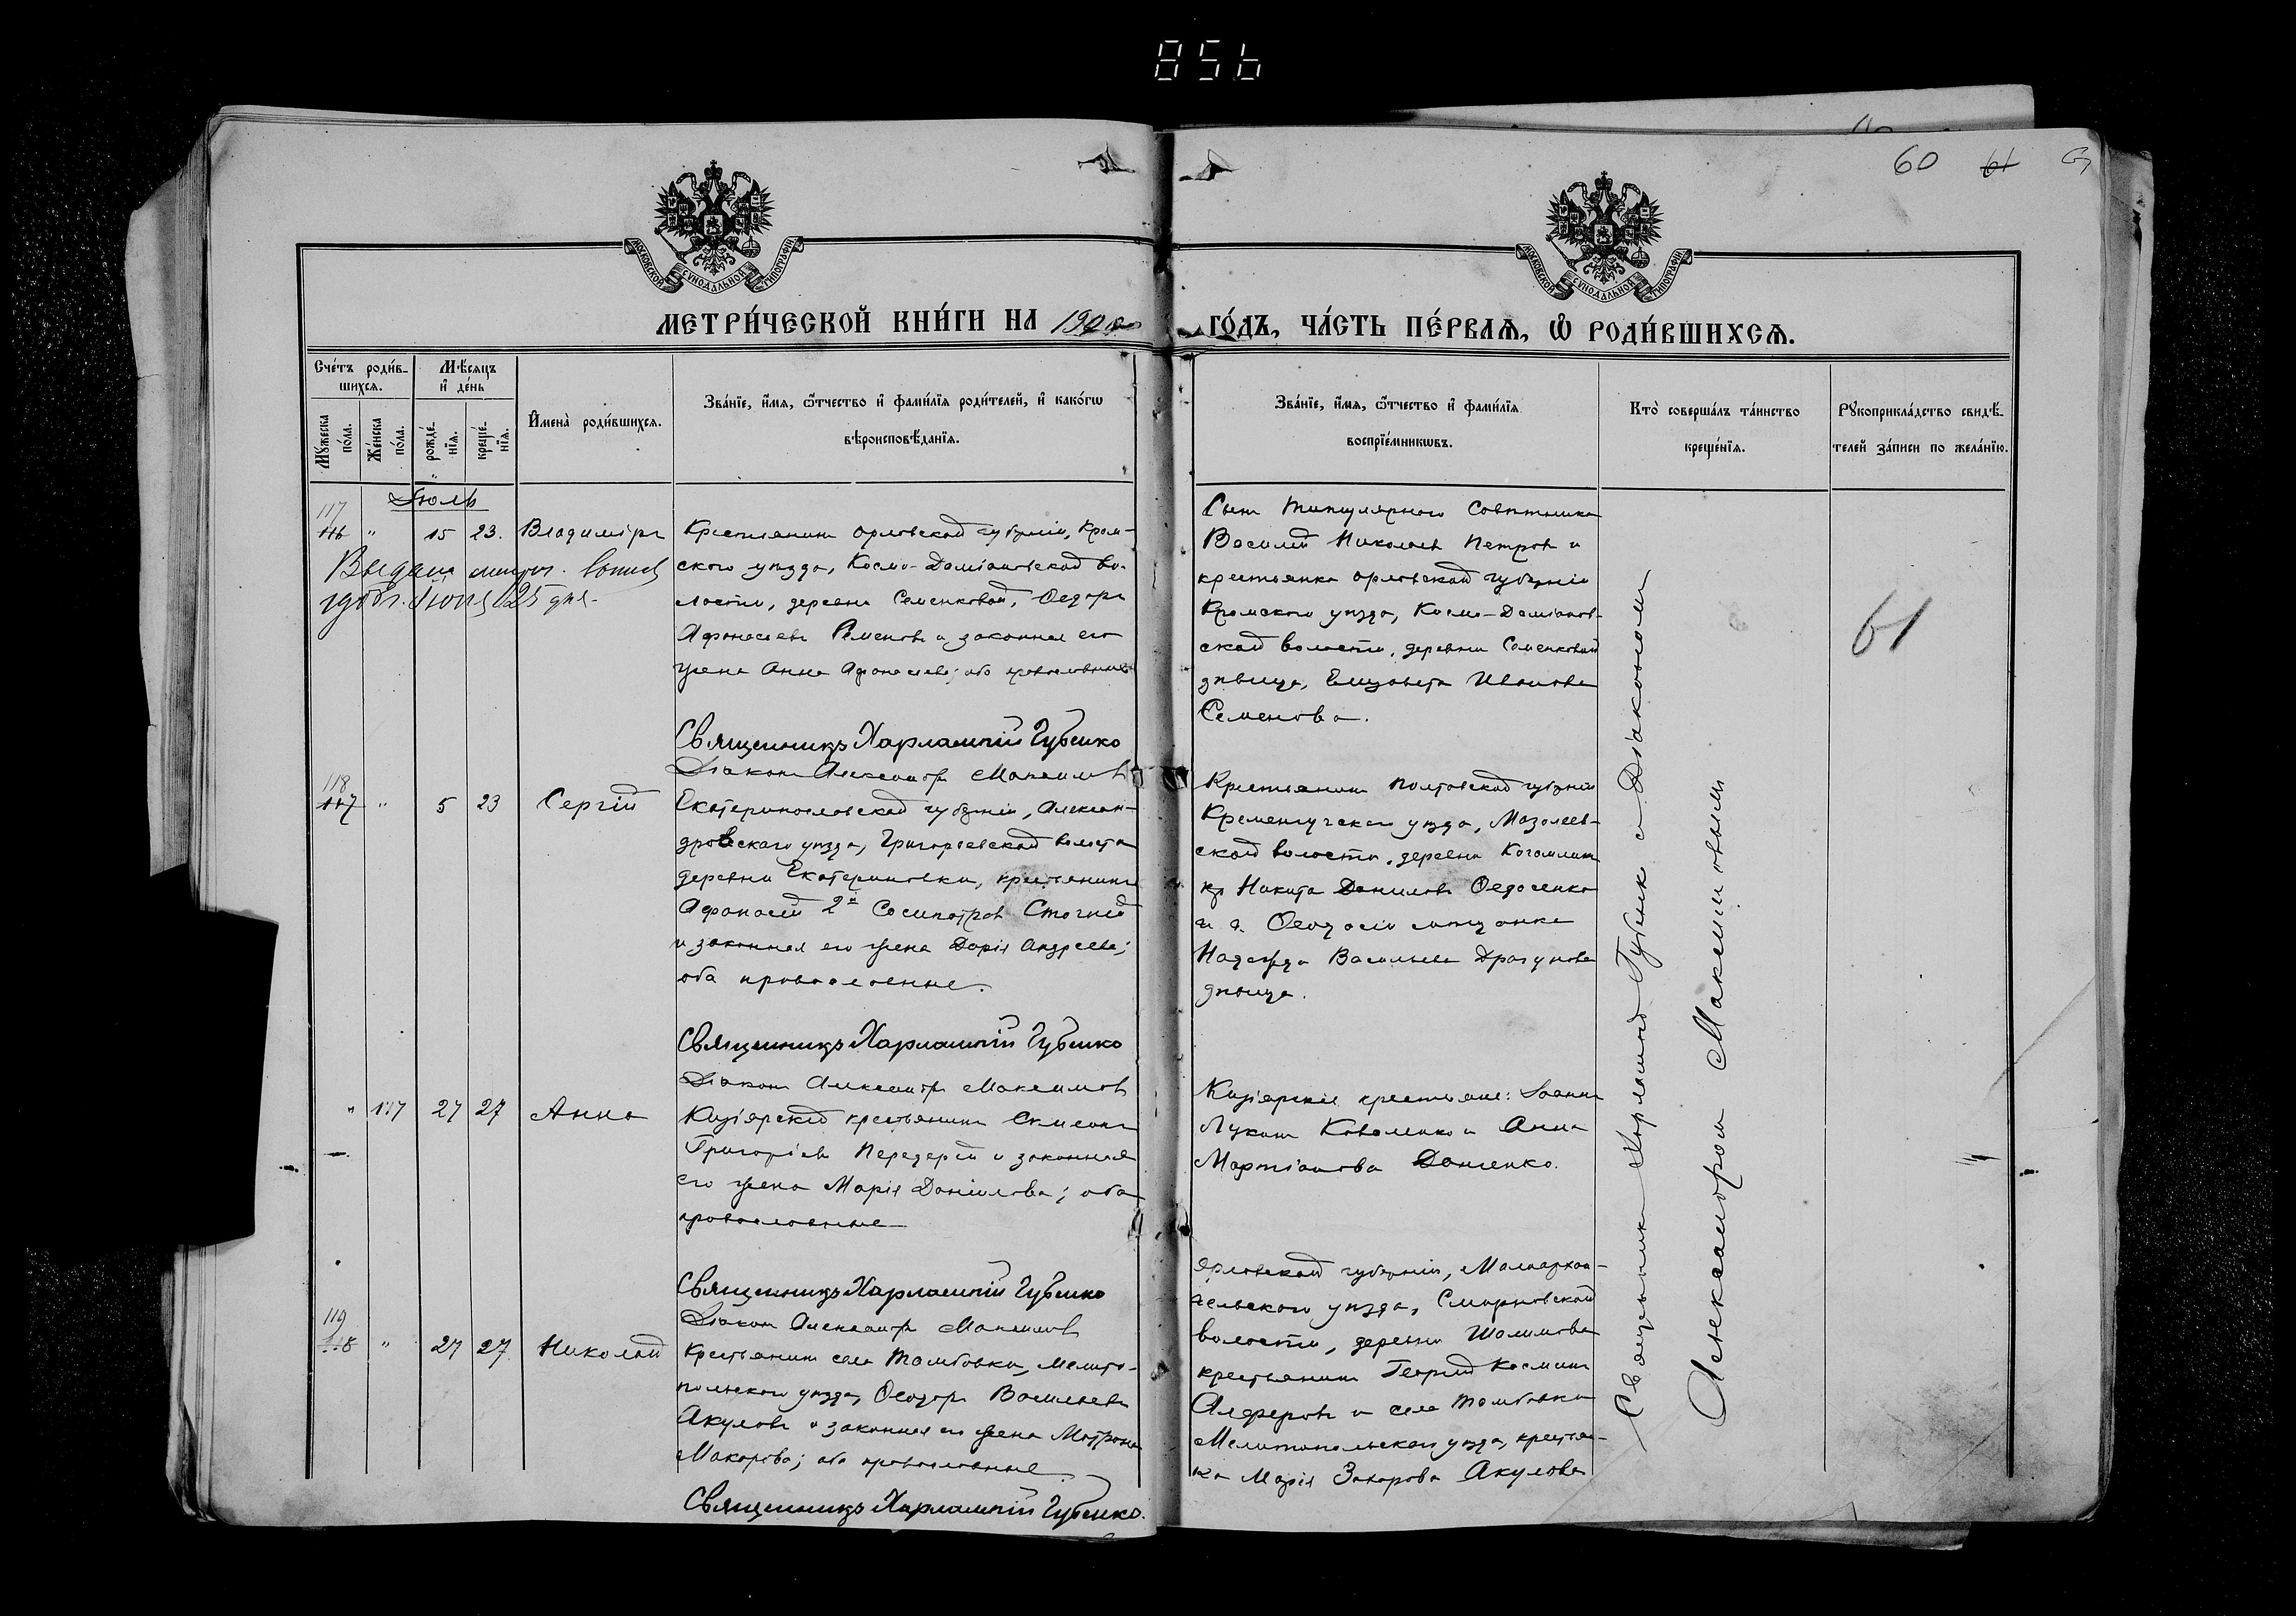 856
60 61
МОСКОВСКОЙ СУНОДАЛЬНОЙ ТИПОГРАФІИ
МОСКОВСКОЙ СУНОДАЛЬНОЙ ТИПОГРАФІИ
МЕТРИ́ЧЕСКОЙ КНИ́ГИ НА
ГО́ДЪ, ЧА́СТЬ ПЕ́РВАѦ, Ѡ҆ РОДИ́ВШИХСѦ.
Сче́тъ роди́в-
шихся.
Мѣ́сяцъ
и҆ де́нь
Му́жеска
по́ла.
Же́нска
по́ла.
рожде́-
нїя.
креще́-
нїя.
И҆мена̀ роди́вшихся.
Зва́нїе, и҆́мя, ѻ҆́тчество и҆ фами́лїя роди́телей, и҆ како́гѡ
вѣроисповѣ́данїя.
Зва́нїе, и҆́мя, ѻ҆́тчество и҆ фами́лїя
воспрїе́мникѡвъ.
Кто̀ соверша́лъ та́инство
креще́нїя.
Рꙋкоприкла́дство свидѣ́-
телей за́писи по жела́нїю.
Іюль
117
116 " 15 23. Владиміръ
Крестьянинъ Орловской губерніи, Кром-
скаго уѣзда, Космо-Даміановской во-
лости, деревни Семенковой, Ѳедоръ
Афанасьевъ Семеновъ и законная его
жена Анна Афанасьева; оба православные
Выдана
Священникъ Харлампій Губенко
Діаконъ Александръ Максимовъ
Сынъ Титулярнаго Совѣтника
Василій Николаевъ Петровъ и
крестьянка Орловской губерніи
Кромскаго уѣзда, Космо-Даміанов-
ской волости, деревни Семенковой
дѣвица, Елизавета Иванова
Семенова.
61
118
117 " 5 23 Сергій
Екатеринославской губерніи, Алексан-
дровскаго уѣзда, Григорьевской волости
деревни Екатериновки, крестьянинъ
Афанасій 2й Сосипатровъ Стогній
и законная его жена Дарія Андреева;
оба православные.
Священникъ Харлампій Губенко
Діаконъ Александръ Максимовъ
Крестьянинъ Полтавской губерніи
Кременчугскаго уѣзда,
ской волости, деревни
Никита Даниловъ Ѳедосенко
и г. Ѳеодосіи мѣщанка
Надежда Васильева Драгунова
дѣвица.
" 117 27 27 Анна
крестьянинъ Симеонъ
Григорьевъ Передерій и законная
его жена Марія Даніилова; оба
православные
Священникъ Харлампій Губенко
Діаконъ Александръ Максимовъ
крестьяне: Іоаннъ
Лукинъ Коваленко и Анна
Мартіанова Данченко.
119
118 " 27 27 Николай
Крестьянинъ села Тамбовки, Мелито-
польскаго уѣзда, Ѳеодоръ Васильевъ
Акуловъ и законная его жена Матрона
Макарова; оба православные
Священникъ Харлампій Губенко.
Орловской губерніи, Малоархан-
гельскаго уѣзда, Смирновской
волости, деревни Шалимова
крестьянинъ Георгій Косминъ
Алферовъ и села Тамбовки
Мелитопольскаго уѣзда, крестьян-
ка Марія Захарова Акулова
Священникъ Харлампій Губенко с Діакономъ
Александромъ Максимовымъ